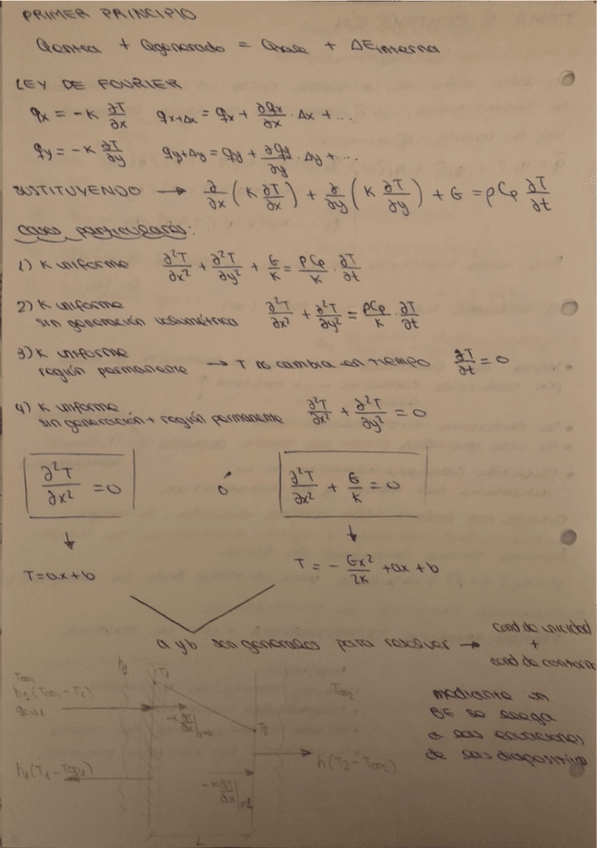 PRIMER PRINCIPIO
Qentra + Qgenerado = Qsale + ΔEinterna
LEY DE FOURIER
qx = -K ∂T/∂x    qx+Δx = qx + ∂qx/∂x · Δx + ...
qy = -K ∂T/∂y    qy+Δy = qy + ∂qy/∂y · Δy + ...
SUSTITUYENDO → ∂/∂x (K ∂T/∂x) + ∂/∂y (K ∂T/∂y) + G = ρCp ∂T/∂t
Casos particulares:
1) K uniforme    ∂²T/∂x² + ∂²T/∂y² + G/K = ρCp/K · ∂T/∂t
2) K uniforme
sin generación volumétrica    ∂²T/∂x² + ∂²T/∂y² = ρCp/K · ∂T/∂t
3) K uniforme
región permanente → T no cambia en tiempo    ∂T/∂t = 0
4) K uniforme
sin generación + región permanente    ∂²T/∂x² + ∂²T/∂y² = 0
∂²T/∂x² = 0    ó    ∂²T/∂x² + G/K = 0
T = ax + b    T = - Gx²/2K + ax + b
a y b son generados para resolver → cond de inicidad
+
cond de contorno
T∞1
T1
T∞2
h1 (T∞1 - T1)
T2
h1 (T1 - T∞1)
h (T2 - T∞2)
L
mediante un
BE se llega
a las ecuaciones
de las diapositivas